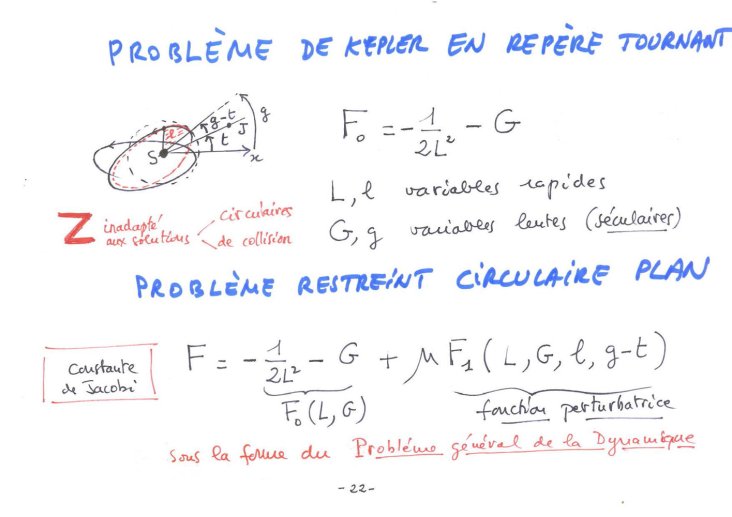 PROBLÈME DE KEPLER EN REPÈRE TOURNANT
g-t
g
l
J
t
S
x
F₀ = -1/2L² - G
L, l variables rapides
G, g variables lentes (séculaires)
Z inadapté aux solutions
circulaires
de collision
PROBLÈME RESTREINT CIRCULAIRE PLAN
Constante
de Jacobi
F = -1/2L² - G + μF₁(L, G, l, g-t)
F₀(L, G)
fonction perturbatrice
sous la forme du Problème général de la Dynamique
-22-